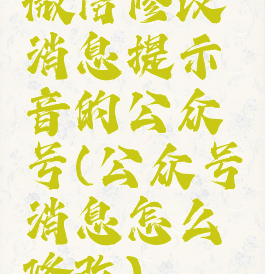 微信修改
消息提示
音的公众
号(公众号
消息怎么
修改)